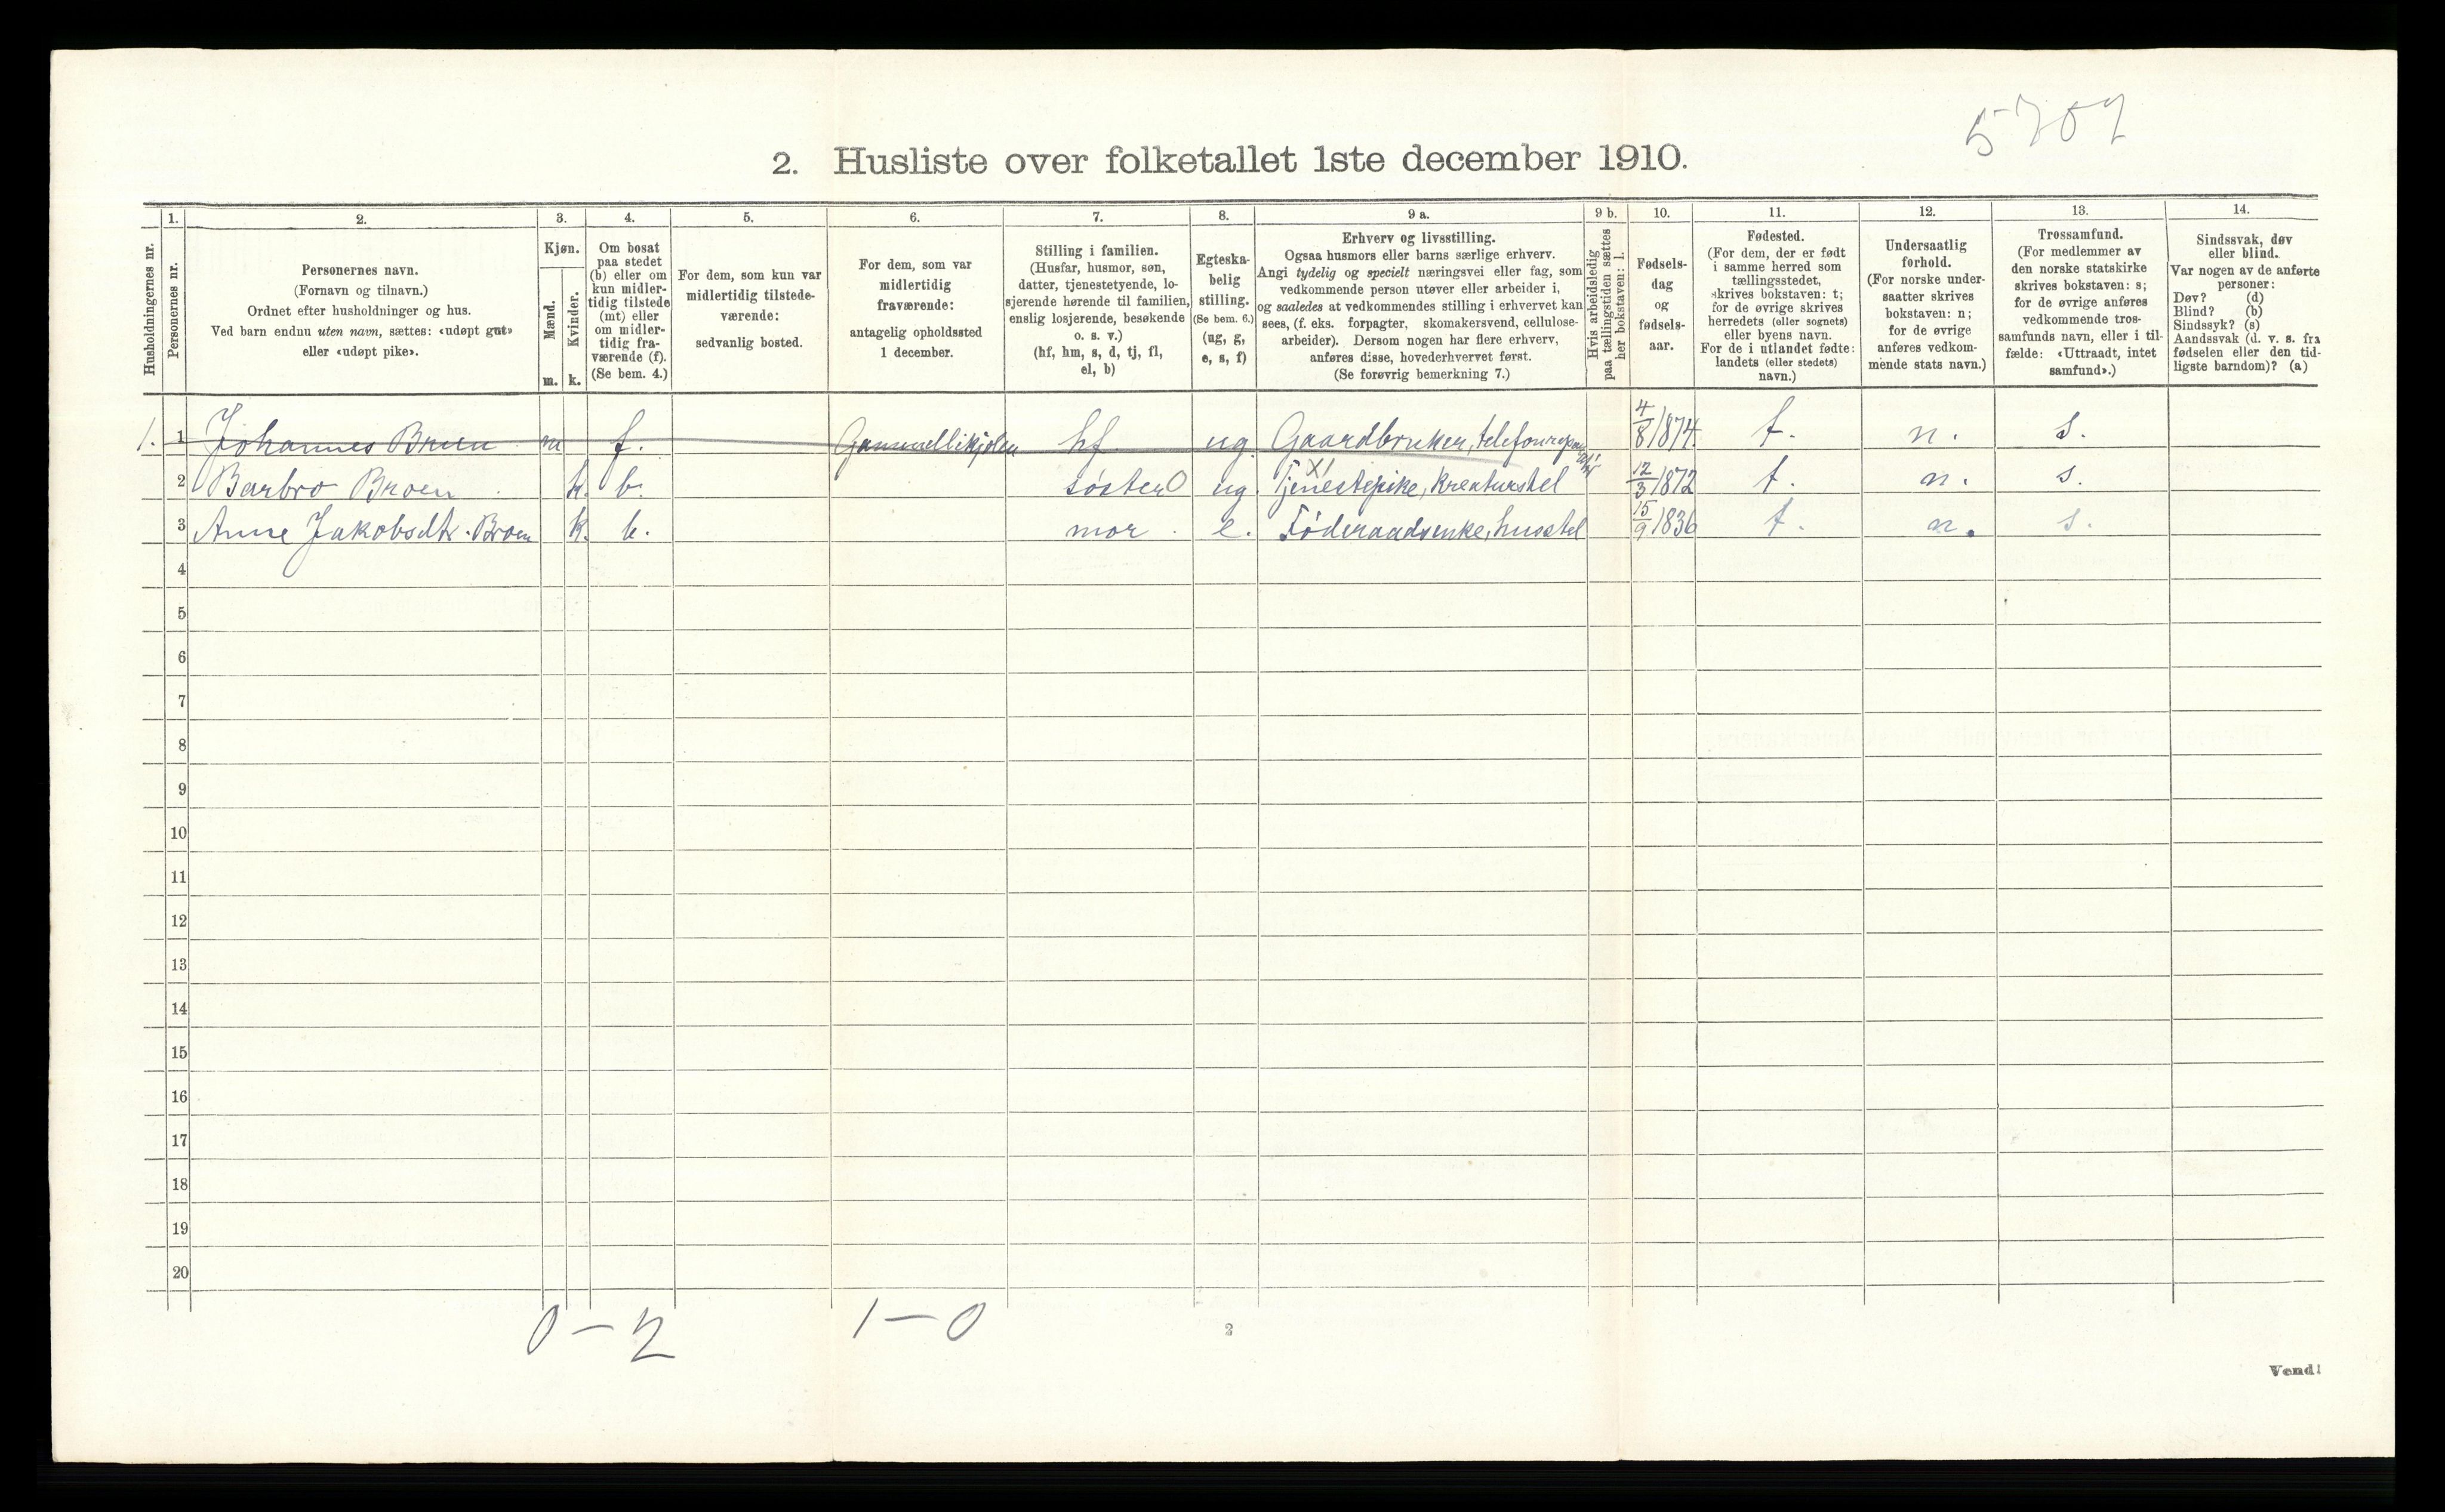 5707
2. Husliste over folketallet 1ste december 1910.
Husholdningernes nr.
1.
Personernes nr.
2.
Personernes navn.
(Fornavn og tilnavn.)
Ordnet efter husholdninger og hus.
Ved barn endnu uten navn, sættes: «udøpt gut»
eller «udøpt pike».
3.
Kjøn.
Mænd.
m.
Kvinder.
k.
4.
Om bosat
paa stedet
(b) eller om
kun midler-
tidig tilstede
(mt) eller
om midler-
tidig fra-
værende (f).
(Se bem. 4.)
5.
For dem, som kun var
midlertidig tilstede-
værende:
sedvanlig bosted.
6.
For dem, som var
midlertidig
fraværende:
antagelig opholdssted
1 december.
7.
Stilling i familien.
(Husfar, husmor, søn,
datter, tjenestetyende, lo-
sjerende hørende til familien,
enslig losjerende, besøkende
o. s. v.)
(hf, hm, s, d, tj, fl,
el, b)
8.
Egteska-
belig
stilling.
(Se bem. 6.)
(ug, g,
e, s, f)
9 a.
Erhverv og livsstilling.
Ogsaa husmors eller barns særlige erhverv.
Angi tydelig og specielt næringsvei eller fag, som
vedkommende person utøver eller arbeider i,
og saaledes at vedkommendes stilling i erhvervet kan
sees, (f. eks. forpagter, skomakersvend, cellulose-
arbeider). Dersom nogen har flere erhverv,
anføres disse, hovederhvervet først.
(Se forøvrig bemerkning 7.)
9 b.
Hvis arbeidsledig
paa tællingstiden sættes
her bokstaven: l.
10.
Fødsels-
dag
og
fødsels-
aar.
11.
Fødested.
(For dem, der er født
i samme herred som
tællingsstedet,
skrives bokstaven: t;
for de øvrige skrives
herredets (eller sognets)
eller byens navn.
For de i utlandet fødte:
landets (eller stedets)
navn.)
12.
Undersaatlig
forhold.
(For norske under-
saatter skrives
bokstaven: n;
for de øvrige
anføres vedkom-
mende stats navn.)
13.
Trossamfund.
(For medlemmer av
den norske statskirke
skrives bokstaven: s;
for de øvrige anføres
vedkommende tros-
samfunds navn, eller i til-
fælde: «Uttraadt, intet
samfund».)
14.
Sindssvak, døv
eller blind.
Var nogen av de anførte
personer:
Døv? (d)
Blind? (b)
Sindssyk? (s)
Aandssvak (d. v. s. fra
fødselen eller den tid-
ligste barndom)? (a)
1. 1 Johannes Bruen m f. hf ug. Gaardbruker, 4/8 1874 t. n. s.
2 Barbro Broen k. b. søster ug. Tjenestepike, Kreaturstel 12/3 1872 t. n. s.
3 Anne Jakobsdtr. Broen k. b. mor e. Føderaadsenke, husstel 15/9 1836 t. n. s.
4
5
6
7
8
9
10
11
12
13
14
15
16
17
18
19
20
0 – 2 1 – 0
2
Vend!